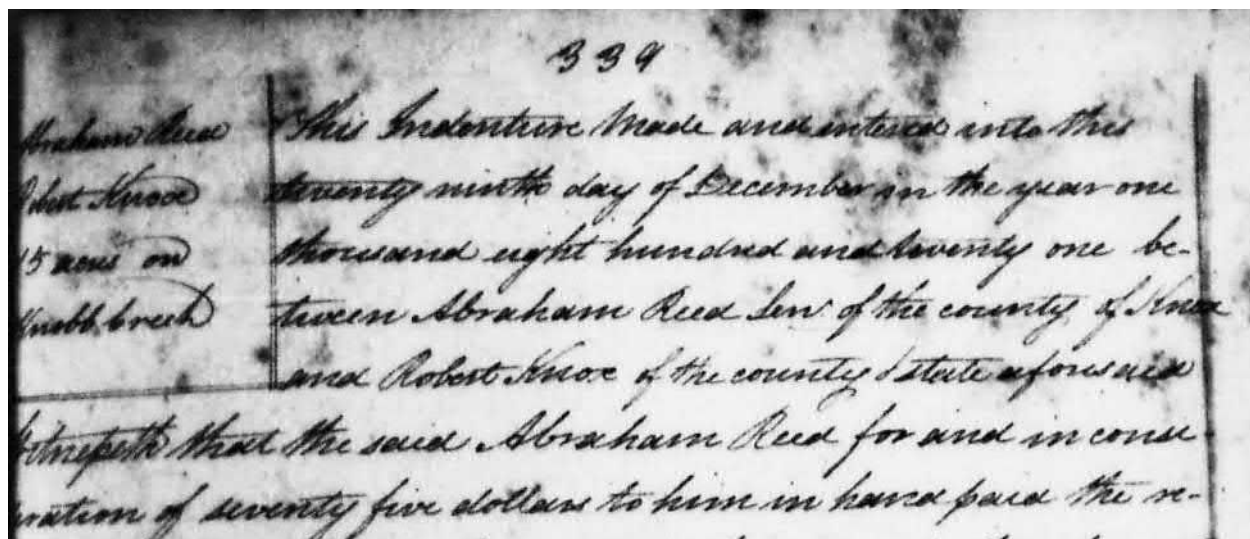 339
Abraham Reed
Robert Knox
15 acres on
Knobb creek
This Indenture Made and entered into this
twenty ninth day of December in the year one
thousand eight hundred and twenty one be-
tween Abraham Reed Senr of the county of Knox
and Robert Knox of the county & state aforesaid
Witnesseth that the said Abraham Reed for and in conse-
ration of seventy five dollars to him in hand paid the re-